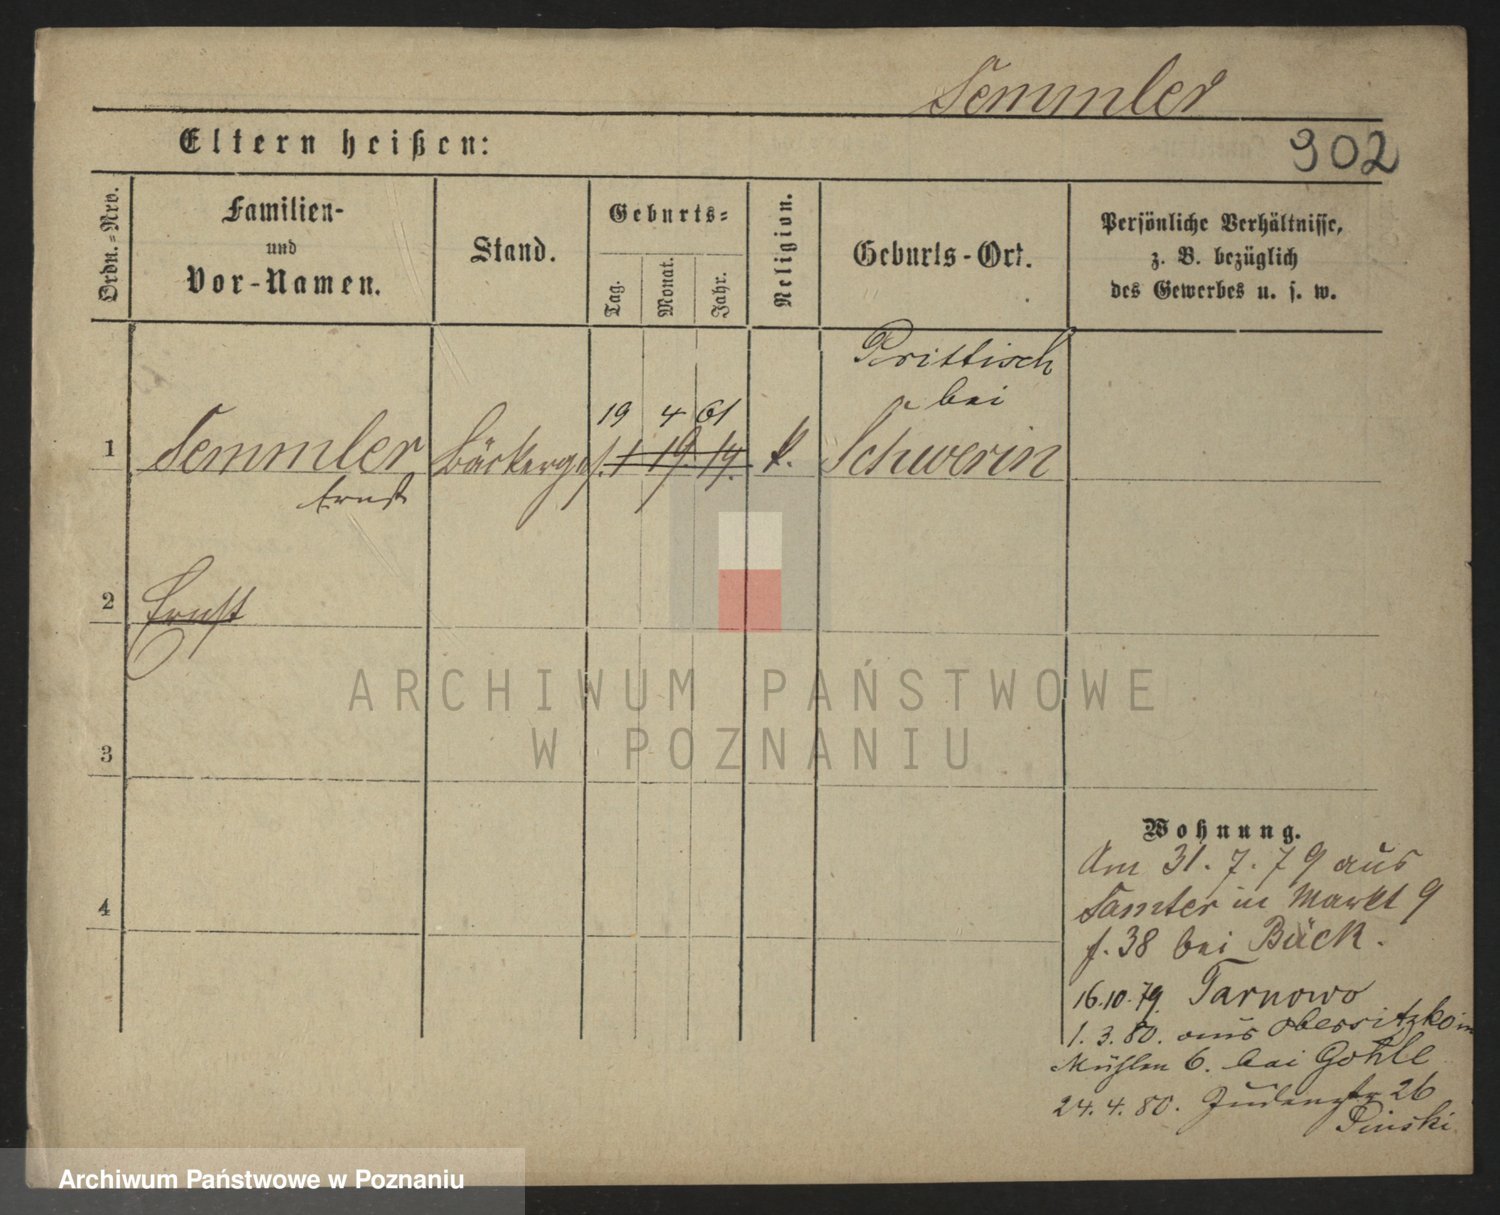 Semmler
Eltern heißen:
302
Ordn.=Nro.
Familien-
und
Vor-Namen.
Stand.
Geburts=
Tag.
Monat.
Jahr.
Religion.
Geburts-Ort.
Persönliche Verhältnisse,
z. B. bezüglich
des Gewerbes u. s. w.
Prittisch
bei
19 4 61
1 Semmler Bäckerges. 1 19. 19. k. Schwerin
Ernst
2 Ernst
ARCHIWUM PAŃSTWOWE
W POZNANIU
3
Wohnung.
Am 31. 7. 79 aus
Samter in Markt 9
4
f. 38 bei Bäck.
16.10.79. Tarnowo
1. 3. 80. aus Obersitzko in
Mühlen 6. bei Gohle
24. 4. 80. Judenstr 26
Pinski
Archiwum Państwowe w Poznaniu